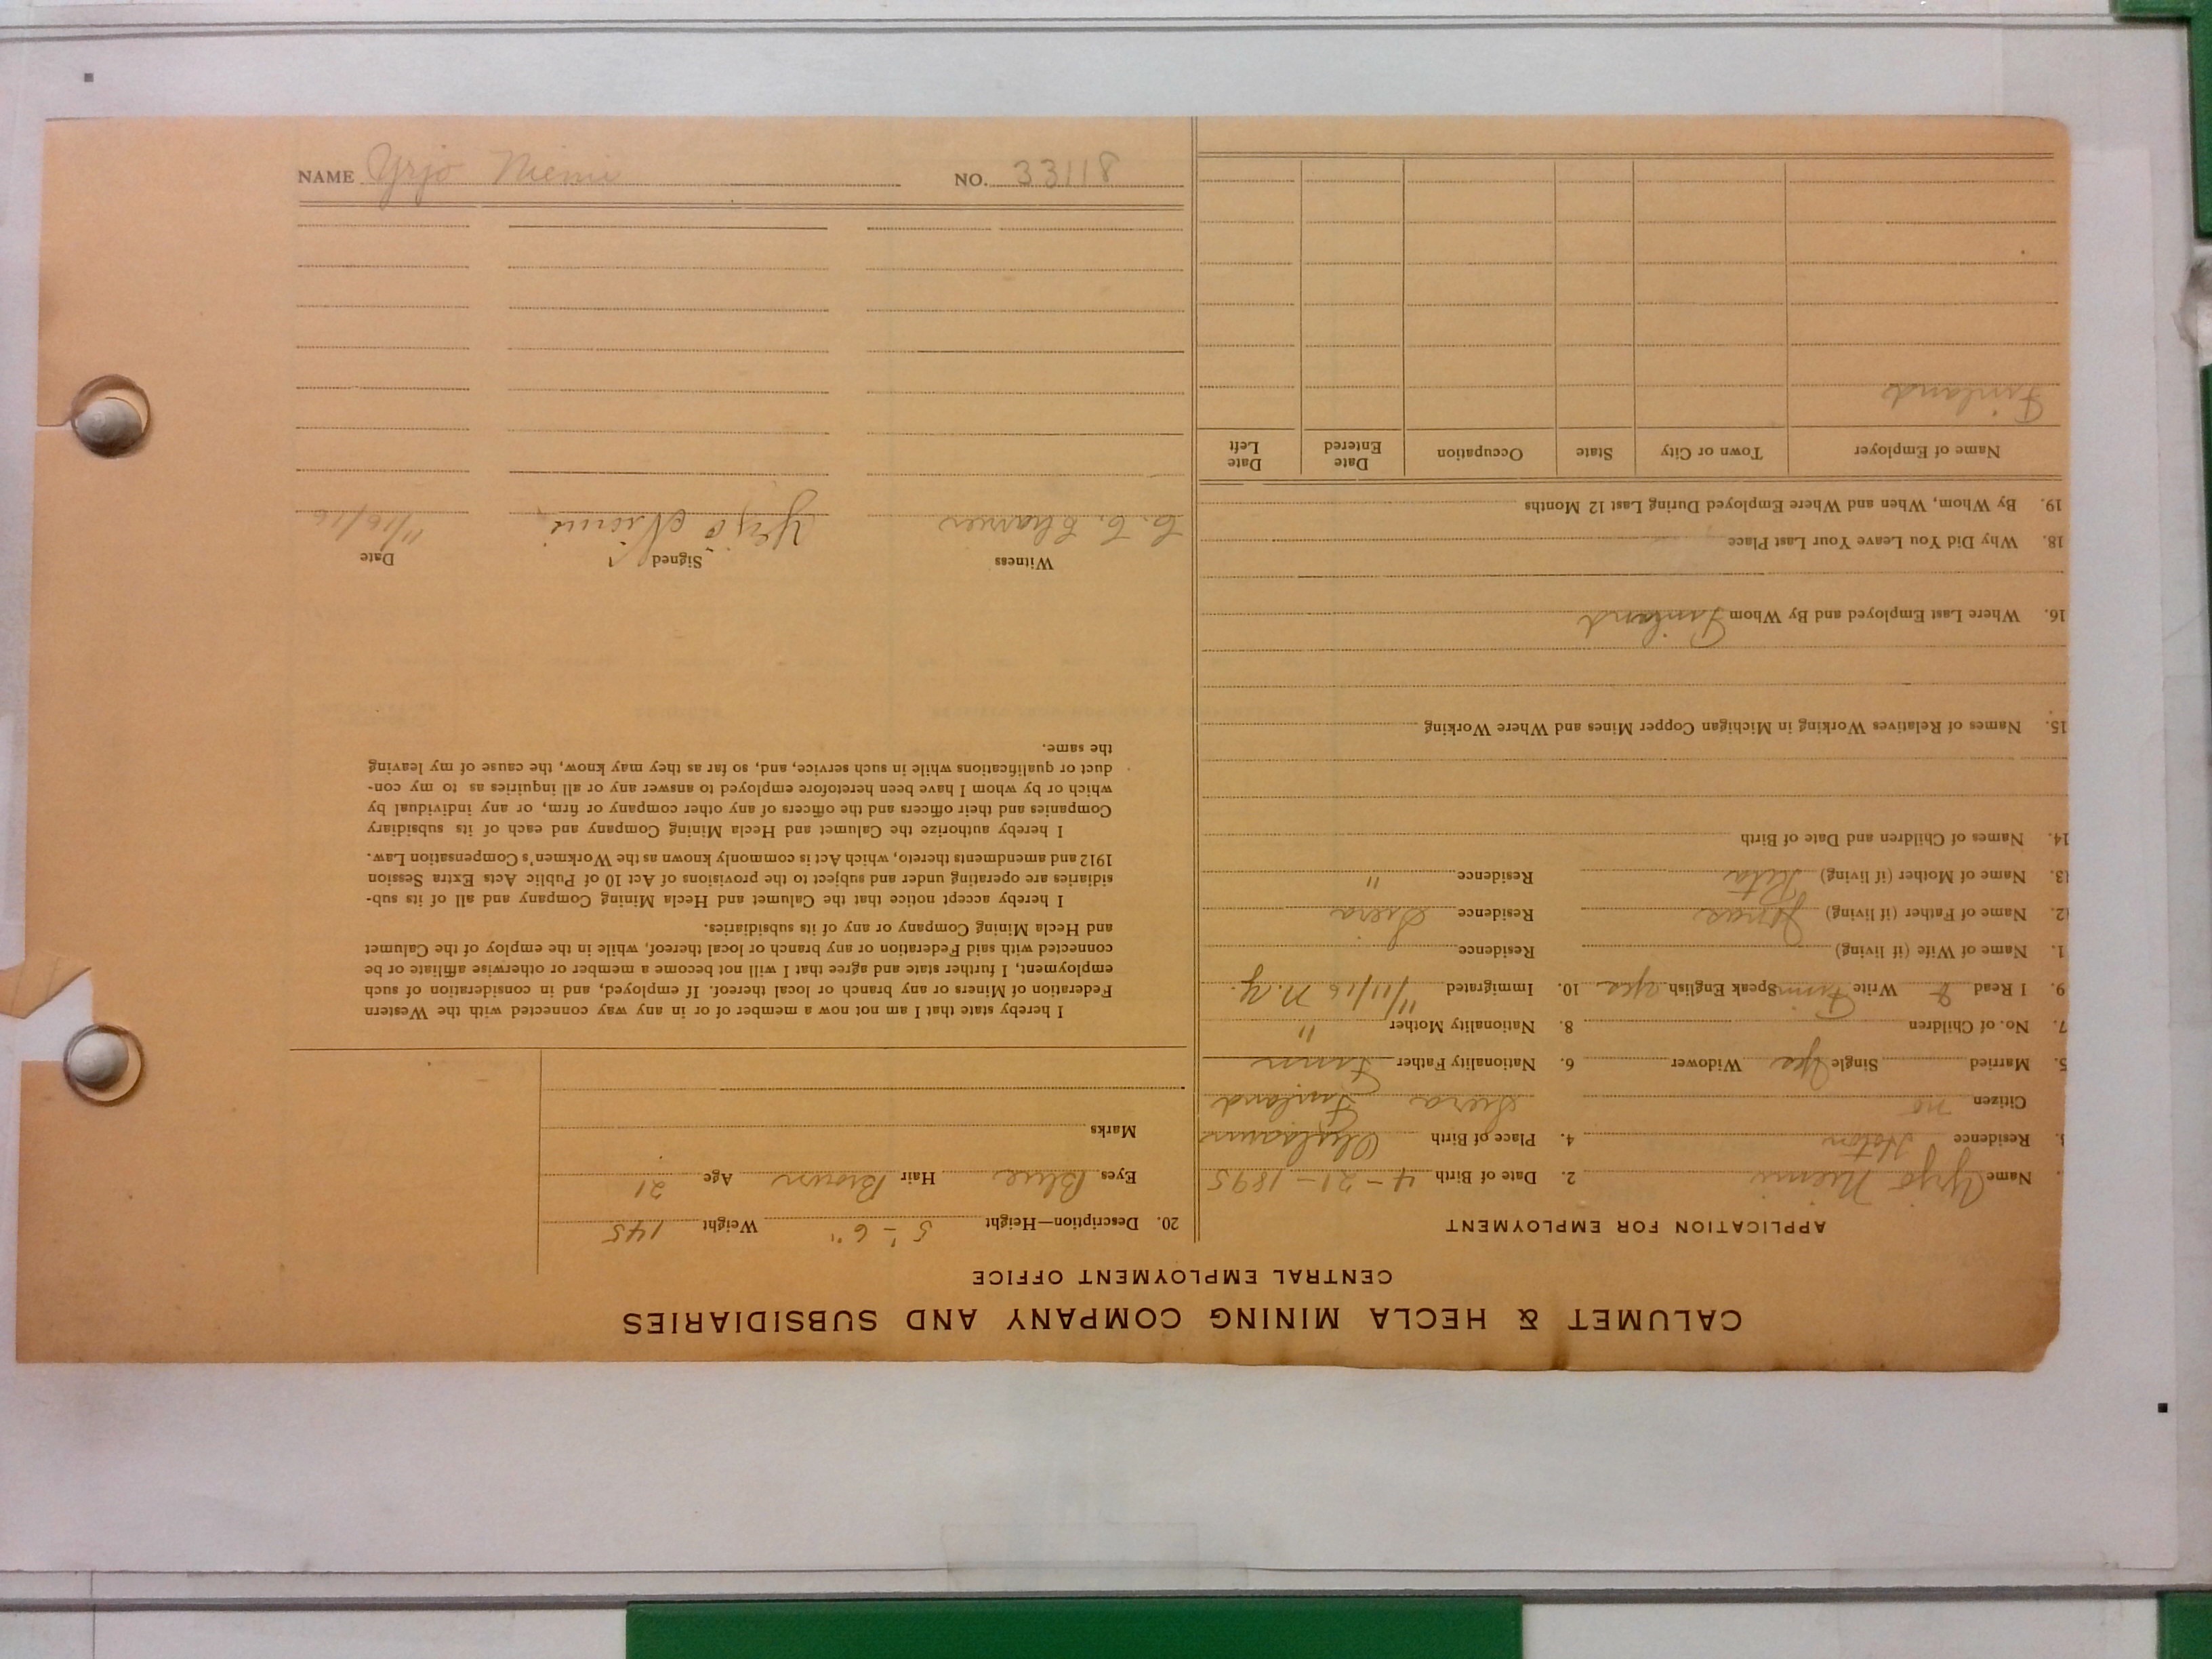 CALUMET & HECLA MINING COMPANY AND SUBSIDIARIES
CENTRAL EMPLOYMENT OFFICE
APPLICATION FOR EMPLOYMENT
Name Yrjo Niemi 2. Date of Birth 4-21-1895
Residence 4. Place of Birth
Citizen no Finland
5. Married Single Yes Widower 6. Nationality Father Finn
7. No. of Children 8. Nationality Mother "
9. I Read & Write Finn Speak English yes 10. Immigrated 11/11/16 N.Y.
1. Name of Wife (if living) Residence
2. Name of Father (if living) Jonas Residence
3. Name of Mother (if living) Residence "
14. Names of Children and Date of Birth
15. Names of Relatives Working in Michigan Copper Mines and Where Working
16. Where Last Employed and By Whom Finland
18. Why Did You Leave Your Last Place
19. By Whom, When and Where Employed During Last 12 Months
Name of Employer Town or City State Occupation Date Entered Date Left
Finland
20. Description—Height 5'-6" Weight 145
Eyes Blue Hair Brown Age 21
Marks
I hereby state that I am not now a member of or in any way connected with the Western
Federation of Miners or any branch or local thereof. If employed, and in consideration of such
employment, I further state and agree that I will not become a member or otherwise affiliate or be
connected with said Federation or any branch or local thereof, while in the employ of the Calumet
and Hecla Mining Company or any of its subsidiaries.
I hereby accept notice that the Calumet and Hecla Mining Company and all of its sub-
sidiaries are operating under and subject to the provisions of Act 10 of Public Acts Extra Session
1912 and amendments thereto, which Act is commonly known as the Workmen's Compensation Law.
I hereby authorize the Calumet and Hecla Mining Company and each of its subsidiary
Companies and their officers and the officers of any other company or firm, or any individual by
which or by whom I have been heretofore employed to answer any or all inquiries as to my con-
duct or qualifications while in such service, and, so far as they may know, the cause of my leaving
the same.
Witness Signed Date
Yrjö Niemi 11/16/16
NAME Yrjo Niemi NO. 33118